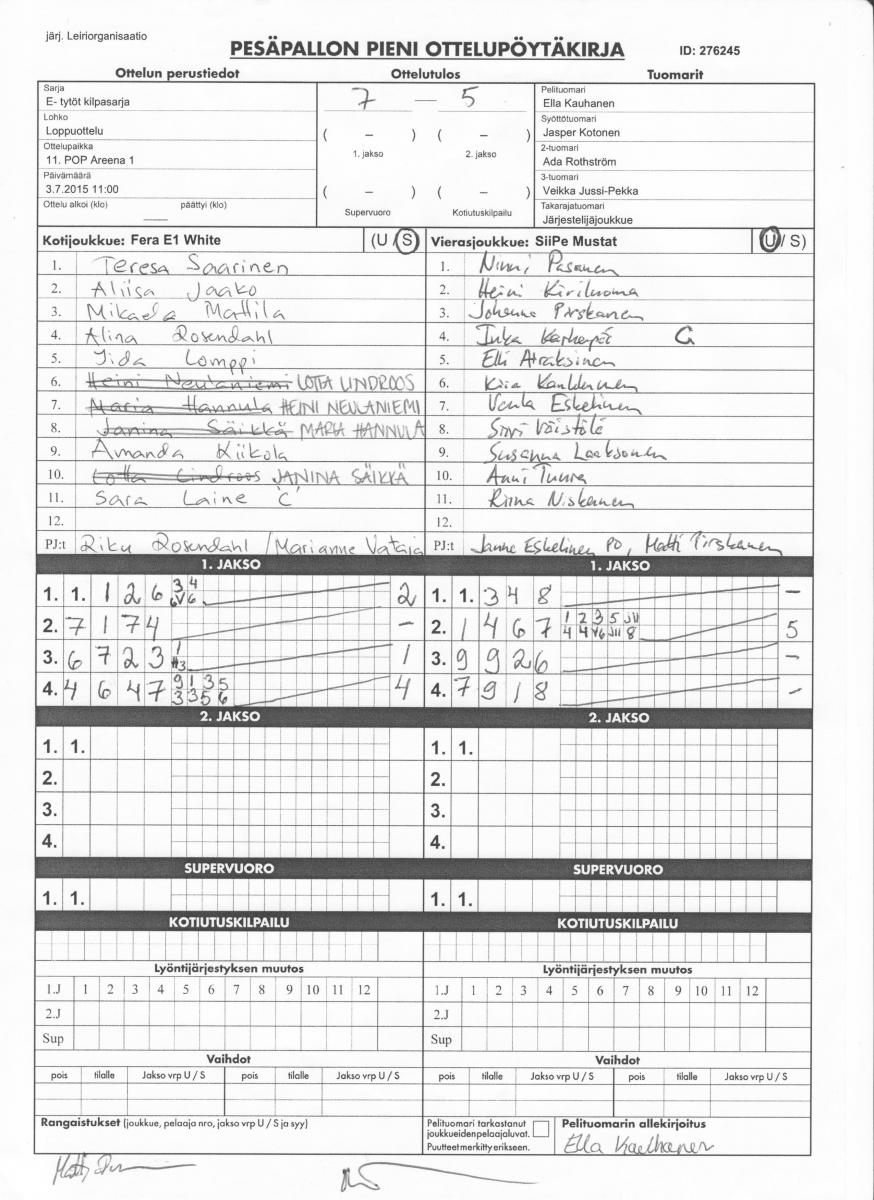 järj. Leiriorganisaatio
PESÄPALLON PIENI OTTELUPÖYTÄKIRJA
ID: 276245
Ottelun perustiedot
Ottelutulos
Tuomarit
Sarja
E- tytöt kilpasarja
Lohko
Loppuottelu
Ottelupaikka
11. POP Areena 1
Päivämäärä
3.7.2015 11:00
Ottelu alkoi (klo) päättyi (klo)
7 — 5
( – ) ( – )
1. jakso 2. jakso
( – ) ( – )
Supervuoro Kotiutuskilpailu
Pelituomari
Ella Kauhanen
Syöttötuomari
Jasper Kotonen
2-tuomari
Ada Rothström
3-tuomari
Veikka Jussi-Pekka
Takarajatuomari
Järjestelijäjoukkue
Kotijoukkue: Fera E1 White (U / S)
1. Teresa Saarinen
2. Aliisa Jaako
3. Mikaela Mattila
4. Alina Rosendahl
5. Iida Lomppi
6. Heini Neulaniemi LOTTA LINDROOS
7. Maria Hannula HEINI NEULANIEMI
8. Janina Säikkä MARIA HANNULA
9. Amanda Kiikola
10. Lotta Lindroos JANINA SÄIKKÄ
11. Sara Laine 'C'
12.
PJ:t Riku Rosendahl / Marianne Vataja
Vierasjoukkue: SiiPe Mustat (U / S)
1. Ninni Pasanen
2. Heini Kiriluoma
3. Johanna Pirskanen
4. Inka C
5. Elli Atraksinen
6. Kiia
7. Venla Eskelinen
8. Sini Väistölä
9. Susanna Laaksonen
10. Anni Tuura
11. Riina Niskanen
12.
PJ:t Janne Eskelinen PO, Matti Pirskanen
1. JAKSO
1. 1. 1 2 6 3 4 2
6 V6
2. 7 1 7 4 –
3. 6 7 2 3 1 1
4. 4 6 4 7 9 1 3 5 4
3 3 5 6
1. JAKSO
1. 1. 3 4 8 –
2. 1 4 6 7 1 2 3 5 5
3. 9 9 2 6 –
4. 7 9 1 8 –
2. JAKSO
1. 1.
2.
3.
4.
2. JAKSO
1. 1.
2.
3.
4.
SUPERVUORO
1. 1.
SUPERVUORO
1. 1.
KOTIUTUSKILPAILU
KOTIUTUSKILPAILU
Lyöntijärjestyksen muutos
1.J 1 2 3 4 5 6 7 8 9 10 11 12
2.J
Sup
Lyöntijärjestyksen muutos
1.J 1 2 3 4 5 6 7 8 9 10 11 12
2.J
Sup
Vaihdot
pois tilalle Jakso vrp U / S pois tilalle Jakso vrp U / S
Vaihdot
pois tilalle Jakso vrp U / S pois tilalle Jakso vrp U / S
Rangaistukset (joukkue, pelaaja nro, jakso vrp U / S ja syy)
Pelituomari tarkastanut
joukkueidenpelaajaluvat.
Puutteet merkitty erikseen.
Pelituomarin allekirjoitus
Ella Kauhanen